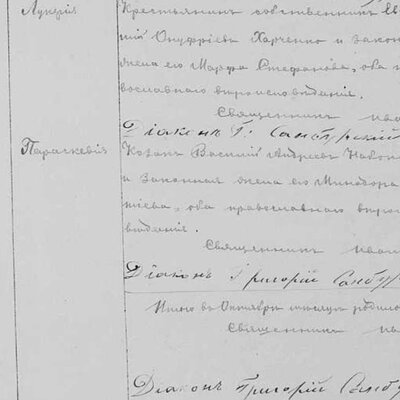 Лукерія
Крестьянинъ собственникъ Ев
ній Онуфріевъ Харченко и закон
жена его Марфа Стефанова, оба п
вославнаго вѣроисповѣданія.
Священникъ Иван
Діаконъ Г. Самбурскій
Параскевія
Козакъ Василій Андреевъ Након
и законная жена его Минодора
тіева, оба православнаго вѣро
вѣданія.
Священникъ Иван
Діаконъ Григорій Самбур
Итого въ Октябрѣ мѣсяцѣ родило
Священникъ Ив
Діаконъ Григорій Самбу